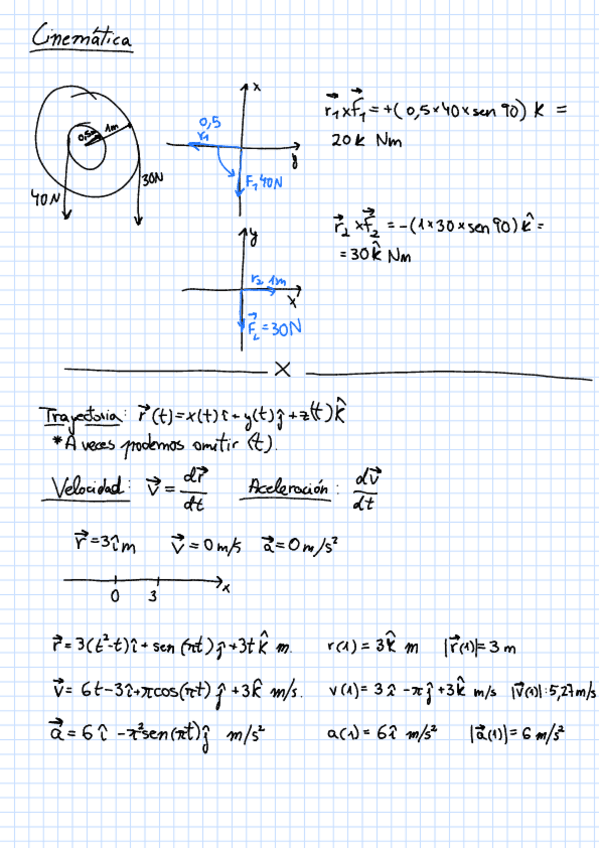 Cinemática
0,5m
1m
40N
30N
x
0,5
r₁
y
F₁ 40N
r⃗₁ x f⃗₁ = +( 0,5 x 40 x sen 90) K =
20k Nm
y
r₂ 1m
x
F⃗₂ = 30N
r⃗₂ x f⃗₂ = -(1 x 30 x sen 90) k̂ =
= 30k̂ Nm
X
Trayectoria: r⃗ (t) = x(t) î + y(t) ĵ + z(t) k̂
*A veces podemos omitir (t).
Velocidad: v⃗ = dr⃗/dt Aceleración: dv⃗/dt
r⃗ = 3î m v⃗ = 0 m/s a⃗ = 0 m/s²
0 3 x
r⃗ = 3(t²-t)î + sen (πt) ĵ + 3t k̂ m. r(1) = 3k̂ m |r⃗(1)| = 3 m
v⃗ = 6t - 3î + πcos(πt) ĵ + 3k̂ m/s. v(1) = 3î - πĵ + 3k̂ m/s |v⃗(1)|: 5,27 m/s
a⃗ = 6 î - π²sen(πt)ĵ m/s² a(1) = 6î m/s² |a⃗(1)| = 6 m/s²